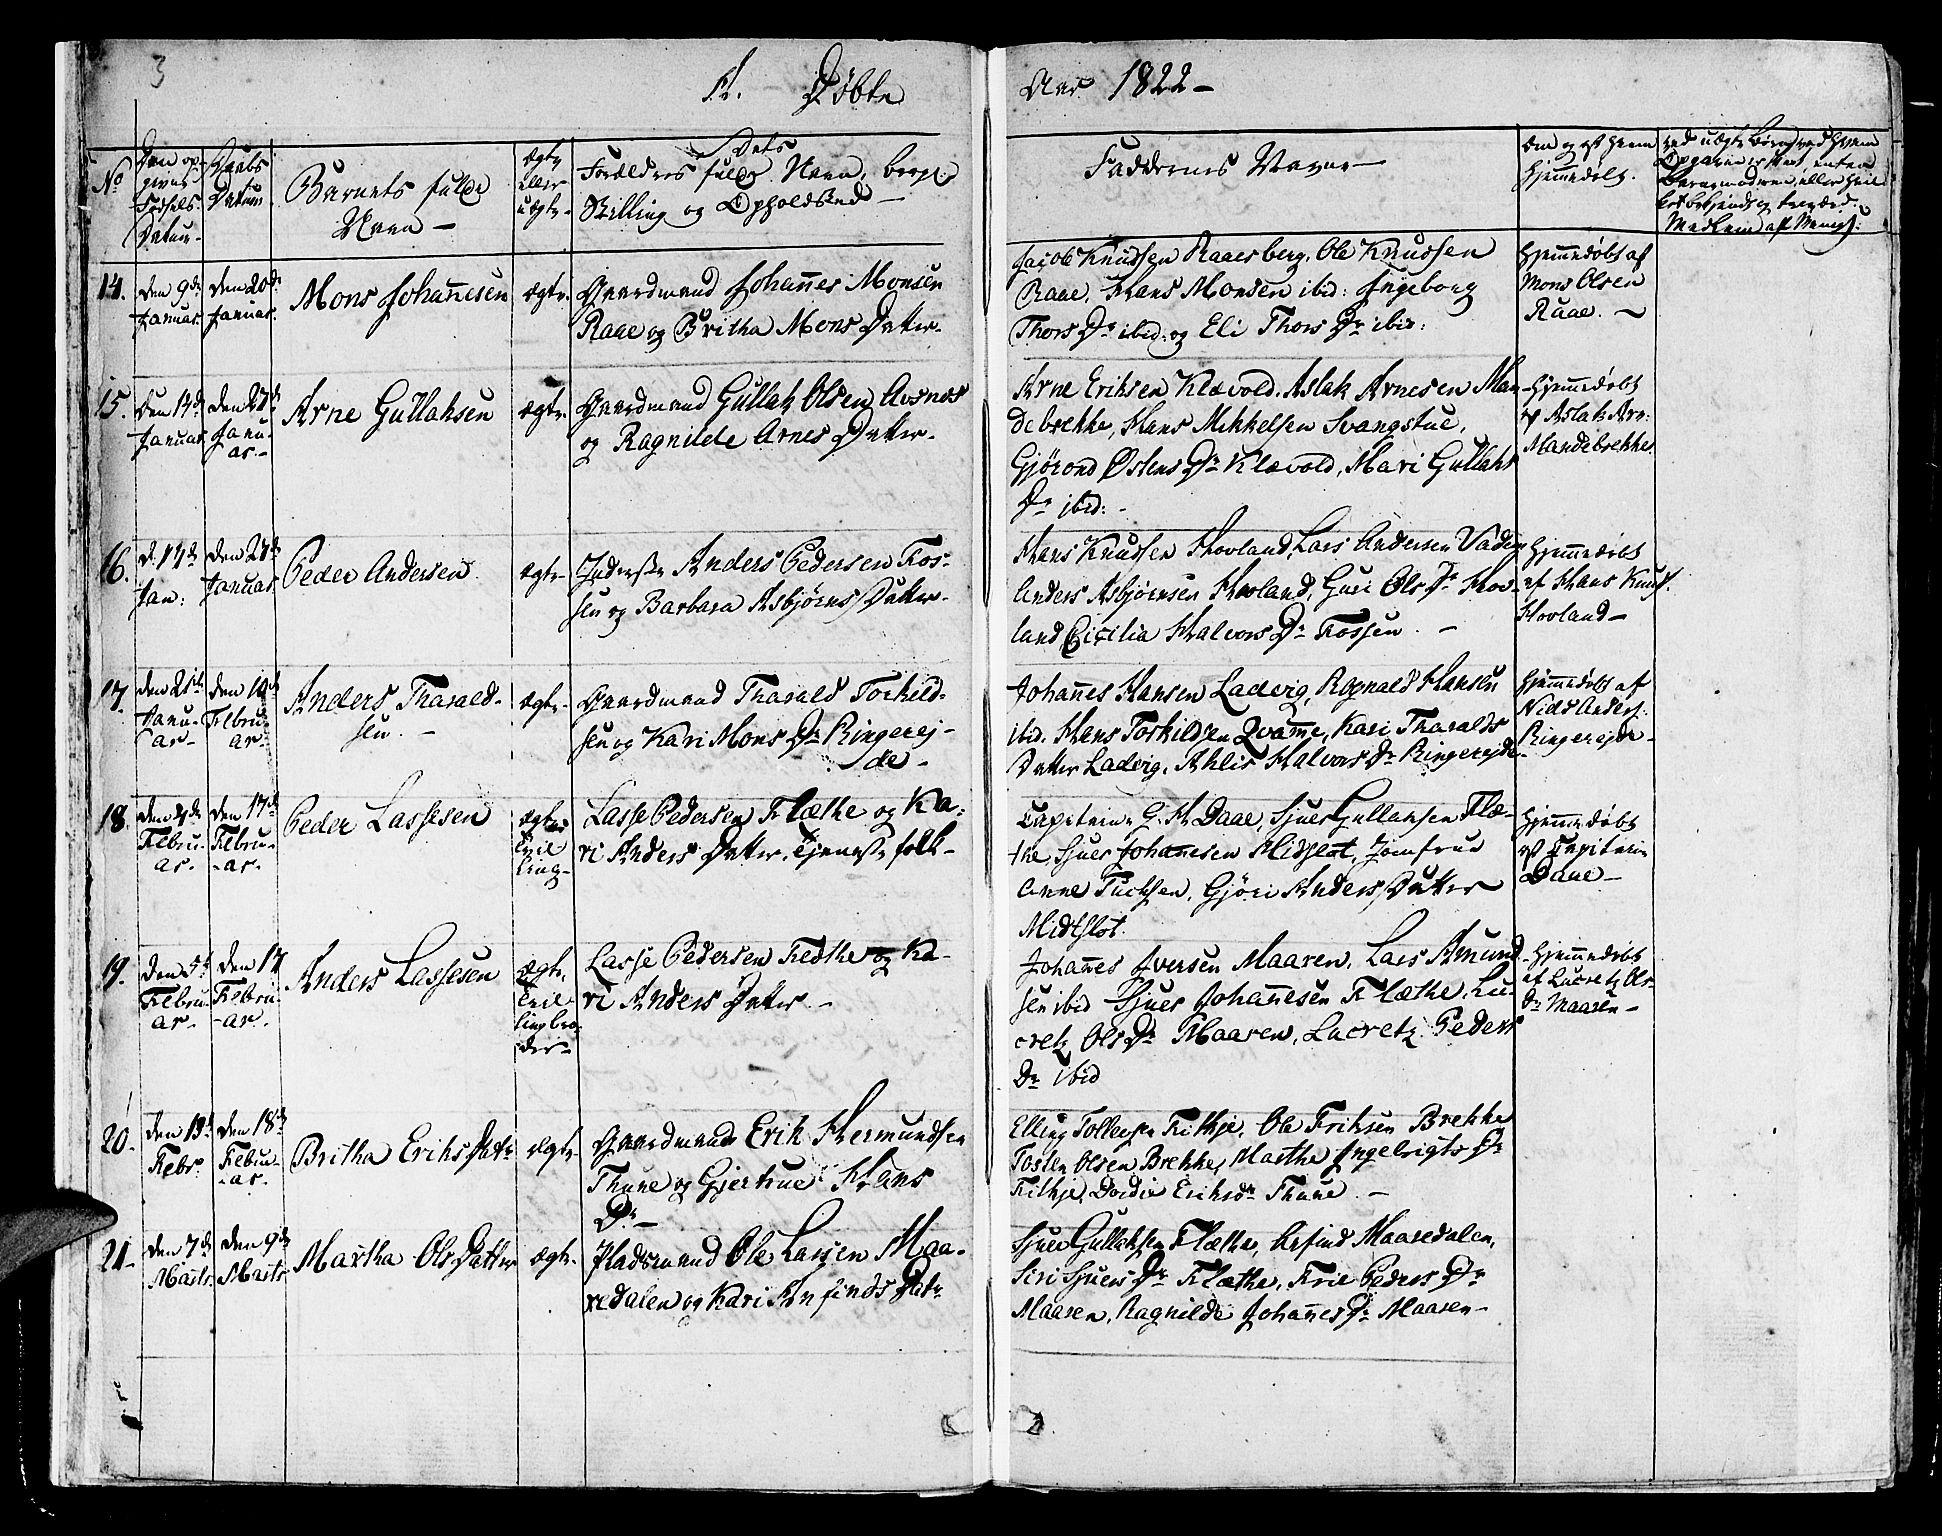 3
A. Døbte
Aar 1822 –
No
Den op-
givne
Fødsels-
Datum –
Daabs
Datum
Barnets fulde
Navn –
ægte
eller
uægte –
Dets
Forældres fulde Navn, borgl.
Stilling og Opholdsted –
Faddernes Navne –
om og af hvem
hjemmedøbt.
14.
Den 9de
Januar.
Den 20de
Januar.
Mons Johannesen
ægte.
Gaardmand Johannes Monsen
Raae og Britha Mons Datter.
Jacob Knudsen Raaesberg, Ole Knudsen
Raae, Hans Monsen ibid: Ingeborg
Thors Dr ibid: og Eli Thors Dr ibid:
Hjemmedøbt af
Mons Olsen
Raae. –
15.
Den 14de
Januar
Den 27de
Janu-
ar. –
Arne Gullaksen
ægte.
Gaardmand Gullak Olsen Aasnes
og Ragnilde Arnes Datter.
Arne Eriksen Klævold, Aslak Arnesen Man-
debrekke, Hans Mikkelsen Svangstue,
Gjørond Østens Dr Klævold, Mari Gullaks
Dr ibid: –
Hjemmedøbt
af Aslak Arn:
Mandebrekke
16.
d. 17de
Jan:
Den 27de
Januar
Peder Andersen
ægte
Inderste Anders Pedersen Fos-
sen og Barbara Asbjørns Datter.
Hans Knudsen Hovland, Lars Andersen Vaden
Anders Asbjørnsen Hovland, Guri Ols Dr Hov-
land Cicilia Halvors Dr Fossen. –
Hjemmedøbt
af Hans Knuds.
Hovland –
17.
Den 21de
Janu-
ar –
Den 10de
Febru-
ar –
Anders Tharald-
sen. –
ægte.
Gaardmand Tharald Torkild-
sen og Kari Mons Dr Ringerej-
de –
Johannes Hansen Ladvig, Rognald Hansen
ibid. Hans Torkildsen Qvamme, Kari Tharalds
Datter Ladvig, Ahlis Halvors Dr Ringerejde
Hjemmedøbt af
Niels Anders:
Ringerejde –
18.
Den 4de
Febru-
ar.
Den 17de
Febru-
-ar.
Peder Lassesen
ægte
Tvil
ling –
Lasse Pedersen Flæthe og Ka-
ri Anders Datter. Tjeneste folk –
Capitaine G. H. Daae, Sjur Gullaksen Flæ-
the, Sjur Johannesen Midtslot, Jomfrue
Anne Tuchsen, Gjøri Anders Datter
Midtslot.
Hjemmedøbt
af Capitain
Daae –
19.
Den 5te
Febru-
ar –
Den 17
Febru-
-ar.
Anders Lassesen
ægte.
Tvil-
lingbro-
der –
Lasse Pedersen Fledthe og Ka-
ri Anders Datter. –
Johannes Iversen Maaren, Lars Amund-
sen ibid Sjuer Johannesen Flæthe, Lu-
cretz Ols Dr Maaren, Lucretz Peders
Dr ibid
Hjemmedøbt
af Lucretz Ols
Dr Maaren –
20.
Den 13de
Febr.
Den 18de
Febru-
-ar.
Britha Eriks Datr
ægte
Gaardmand Erik Hermundsen
Thune og Gjertrue Hans
Dr –
Elling Tollefsen Fithje, Ole Eriksen Brekke
Tosten Olsen Brekke, Martha Ingebrigts Dr
Fithje, Dordie Eriks Dr Thune. –
21.
Den 7de
Marts
Den 9de
Marts
Martha Ols Datter
ægte.
Pladsmand Ole Larsen Maa-
redalen og Kari Anfinds Datr
Sjuer Gullaksen Flæthe, Arfind Maaredalen,
Siri Sjuers Dr Flæthe, Eric Peders Dr
Maaren, Ragnilde Johannes Dr Maaren –